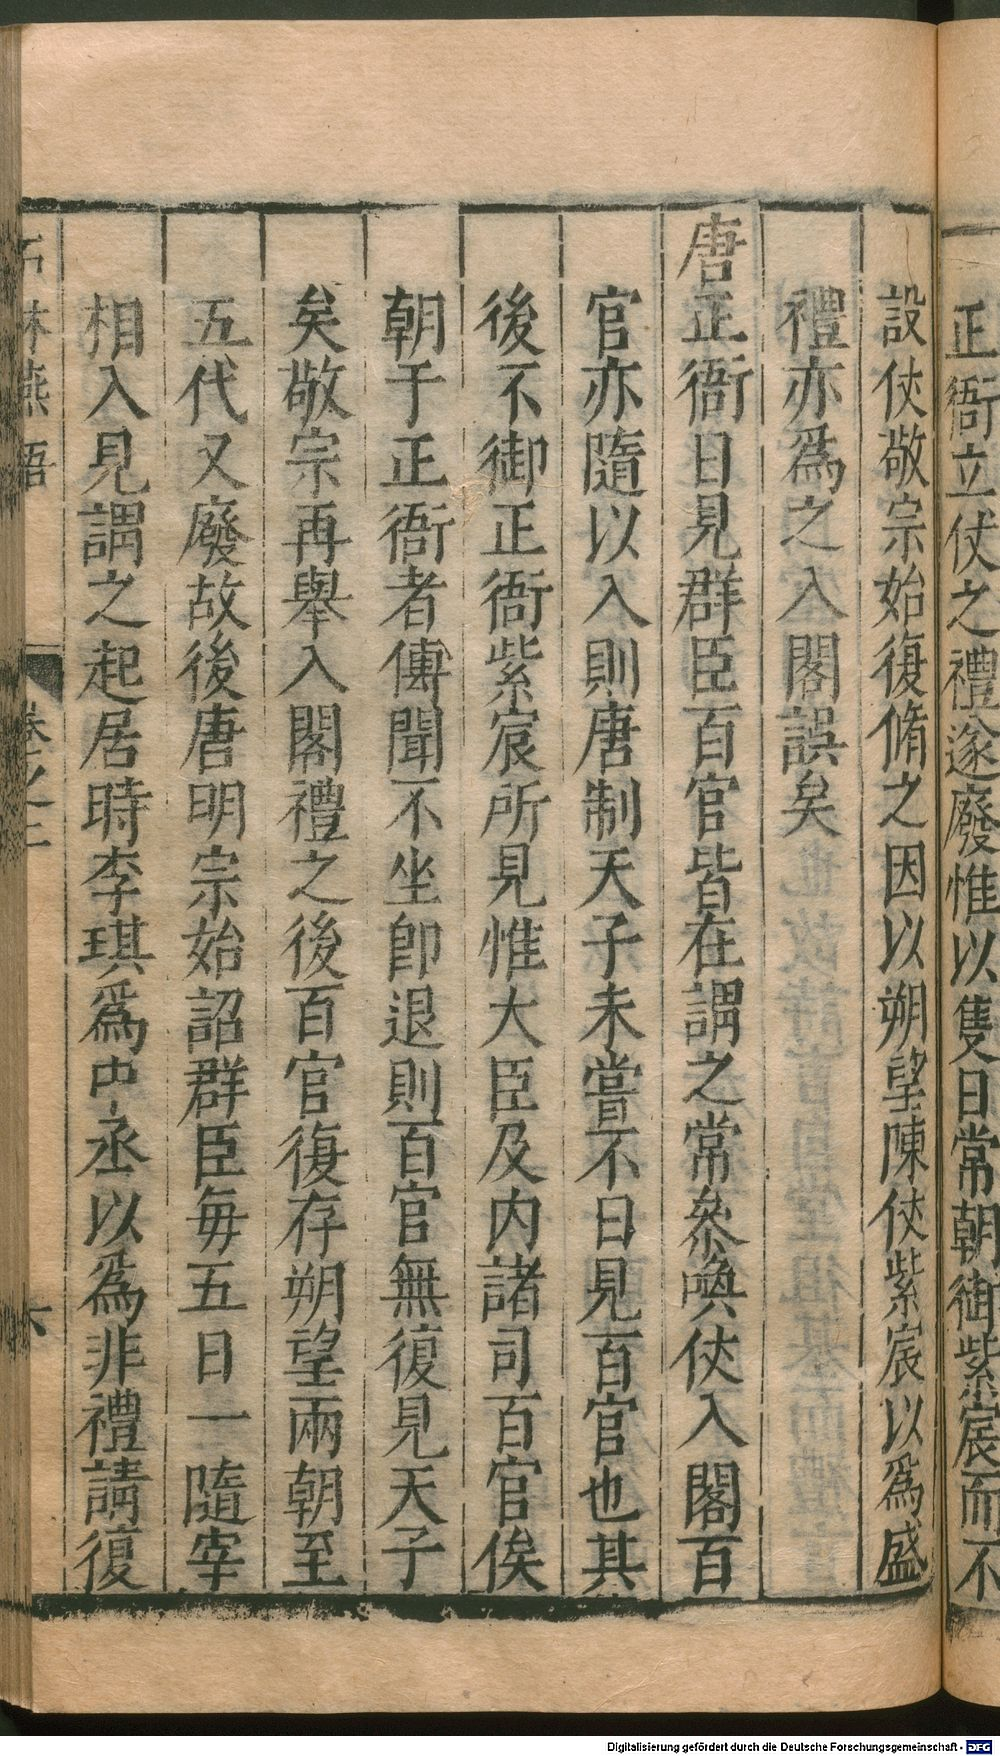 正衙立仗之禮遂廢惟以隻日常朝御紫宸而不
設仗敬宗始復脩之因以朔望陳仗紫宸以為盛
禮亦為之入閣誤矣
唐正衙日見群臣百官皆在謂之常叅喚仗入閣百
官亦隨以入則唐制天子未嘗不日見百官也其
後不御正衙紫宸所見惟大臣及內諸司百官俟
朝于正衙者傳聞不坐即退則百官無復見天子
矣敬宗再舉入閣禮之後百官復存朔望兩朝至
五代又廢故後唐明宗始詔群臣每五日一隨宰
相入見謂之起居時李琪為中丞以為非禮請復
石林燕語 卷之二 六
Digitalisierung gefördert durch die Deutsche Forschungsgemeinschaft - DFG